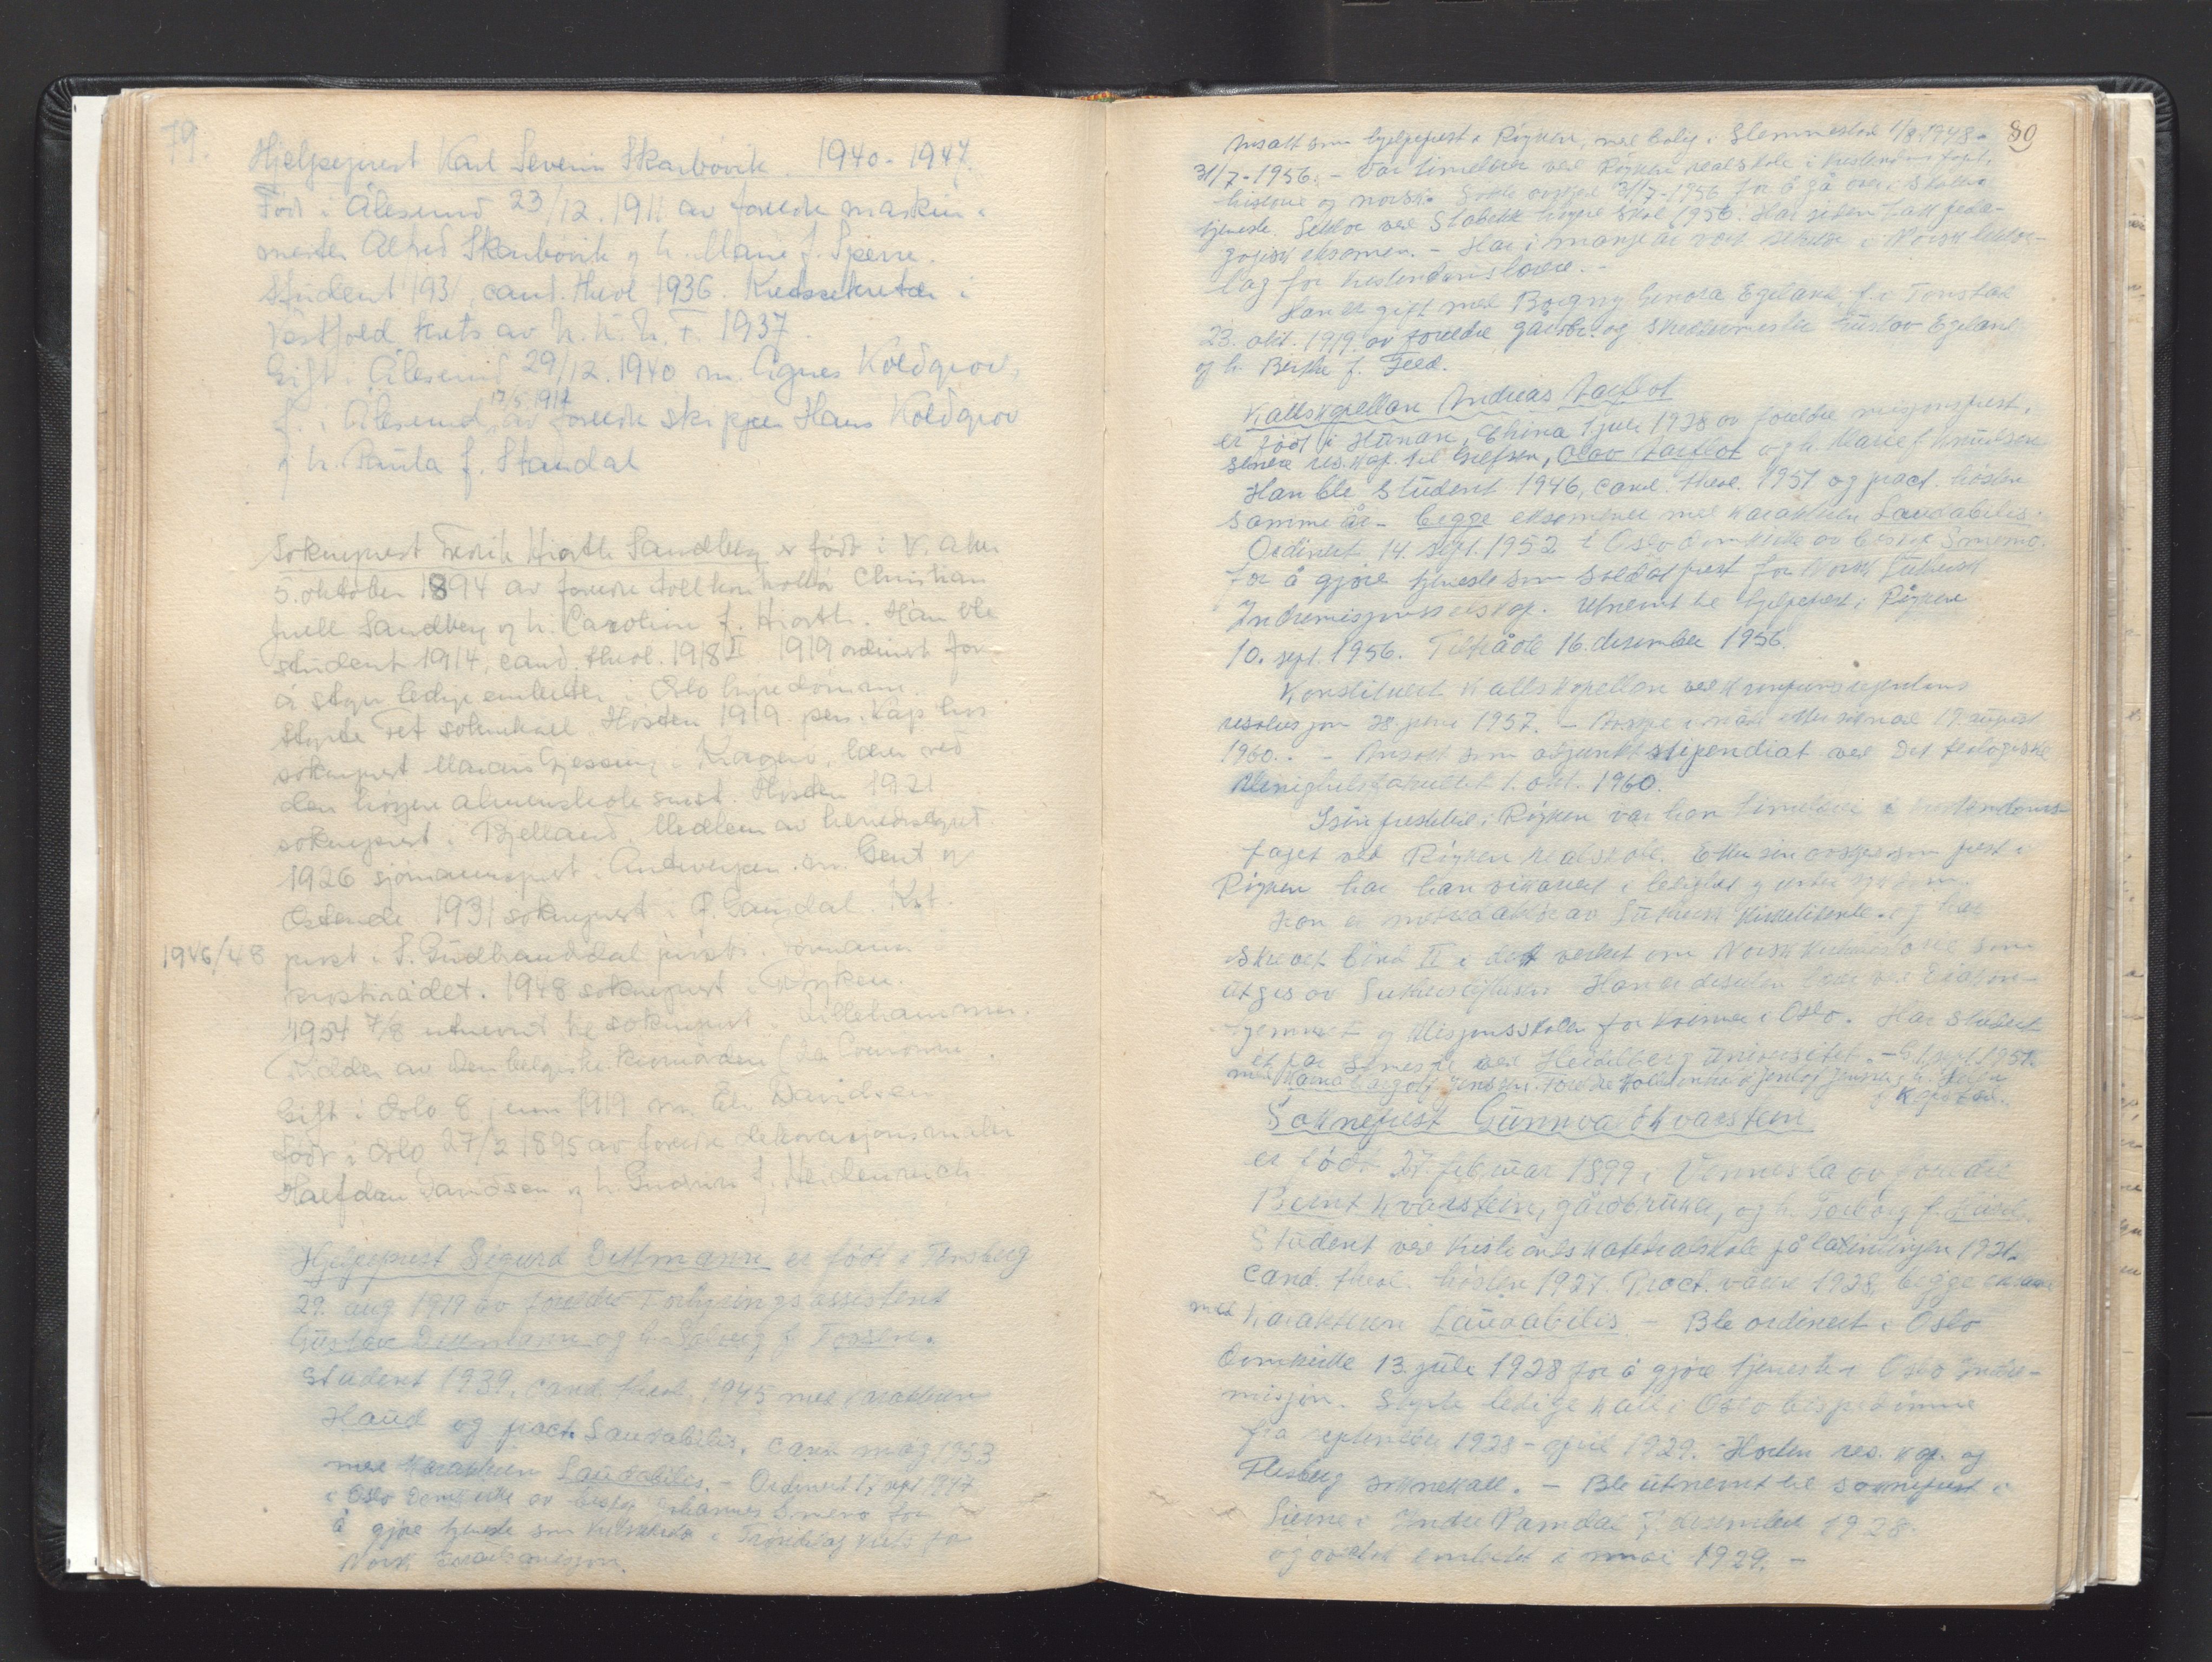 79.
Hjelpeprest Karl Severin Skarbøvik. 1940-1947.
Född i Ålesund 23/12. 1911 av foreldre maskin-
mester Alfred Skarbøvik og h. Marie f. Sperre.
Student 1931, cand. theol 1936. Kretssekretær i
Vestfold krets av 1937
Gift i Ålesund 29/12. 1940 m. Agnes Koldgrov,
f. i Ålesund 17/5. 1917 av foreldre skipper Hans Koldgrov
og h. Paula f. Standal
Sokneprest Fredrik Hiorth Sandberg er født i V. Aker
5. oktober 1894 av foreldre tollkontrollør Christian
Juell Sandberg og h. Caroline f. Hiorth. Han ble
student 1914, cand. theol. 1918 II 1919 ordinert for
å styre ledige embeter i Oslo bispedømme.
Styrte soknekall. Høsten 1919 pers. kap. hos
sokneprest Marius Gjessing i Kragerø, lærer ved
den høyere almenskole smst. Høsten 1921
sokneprest i Bjelland. Medlem av herredsstyret.
1926 sjømannsprest i Antwerpen m. Gent og
Ostende. 1931 sokneprest i Ø. Gausdal. Kst.
1946/48 prost i S. Gudbrandsdal prosti. Formann i
prostirådet. 1948 sokneprest i Røyken.
1954 7/8 utnevnt til sokneprest i Lillehammer.
Ridder av den belgiske kroneorden (
Gift i Oslo 8 juni 1919 m. Davidsen
født i Oslo 27/2 1895 av foreldre dekorasjonsmaler
Halfdan Davidsen og h. Gudrun f. Heidenreich
Hjelpeprest Sigurd Dittmann er født i Tønsberg
29. aug 1919 av foreldre Forlyningsassistent
Gustav Dittmann og h. Solveig f. Torsen.
Student 1939, cand. theol. 1945 med karakteren
Haud og pract. Laudabilis. Cand mag 1953
med karakteren Laudabilis. - Ordinert 17 sept 1947
i Oslo Domkirke av biskop Johannes Smemo for
å gjøre tjeneste som kretssekretær i Trøndelag krets for
Norsk Israelsmisjon.
80
Ansatt som hjelpeprest i Røyken, med bolig i Slemmestad 1/8. 1948 -
31/7-1956. - Var timelærer ved Røyken realskole i kristendoms fagt,
historie og norsk. Søkte avskjed 31/7-1956 for å gå over i skolens
tjeneste. Lektor ved Stabekk høyere skole 1956. Har siden tatt peda-
gogisk eksamen. - Har i mange år vært sekretær i Norsk lektor-
lag for kristendomslærere. -
Han er gift med Borgny Genora Egeland, f. i Tonstad
23. okt. 1919 av foreldre gårdbr. og snekkermester Gustav Egeland
og h. Berthe f. Feed.
Kallskapellan Andreas Aarflot
er født i Hunan, China 1 juli 1928 av foreldre misjonsprest,
senere res. kap. til Grefsen, Olav Aarflot og h. Marie f. Knudsen
Han ble student 1946, cand. theol. 1951 og pract. høsten
samme år - begge eksamener med karakteren Laudabilis.
Ordinert 14. sept. 1952 i Oslo domkirke av biskop Smemo.
for å gjøre tjeneste som soldatprest for Norsk Luthersk
Indremisjonsselskap. Utnevnt til hjelpeprest i Røyken
10. sept. 1956. Tiltrådte 16. desember 1956.
Konstituert kallskapellan ved kronprinsregentens
resolusjon 28. juni 1957. - Avskjed i nåde etter søknad 19. august
1960. - Ansatt som adjunktstipendiat ved Det teologiske
Menighetsfakultet 1. okt. 1960.
I sin prestetid i Røyken var han timelærer i kristendoms-
faget ved Røyken realskole. Etter sin avskjed som prest i
Røyken har han vikariert i ledighet og under sykdom.
Han er medredaktør av Luthersk Kirketidende. og har
skrevet bind II i det verket om Norsk Kirkehistorie som
utgis av Lutherstiftelsen. Han er desuten lærer ved Diakon-
hjemmet og Misjonsskolen for kvinner i Oslo. Har studert
et par semestre ved Heidelberg Universitet. - G. 1 sept. 1951.
Sokneprest Gunnvald Kvarstein
er født 27. februar 1899 i Vennesla av foreldre
Bernt Kvarstein, gårdbruker, og h. Torborg f.
Student ved Kristiansands katedralskole på latinlinjen 1921.
Cand. theol. høsten 1927. Pract. våren 1928, begge eksamener
med karakteren Laudabilis - Ble ordinert i Oslo
domkirke 13. juli 1928 for å gjøre tjeneste i Oslo Indre-
misjon. Styrte ledige kall i Oslo bispedømme
fra september 1928 - april 1929. Horten res. kap. og
Flesberg sokneskall. - Ble utnevnt til sokneprest i
Lierne i Indre Namdal 7 desember 1928.
og overtok embetet i mai 1929. -